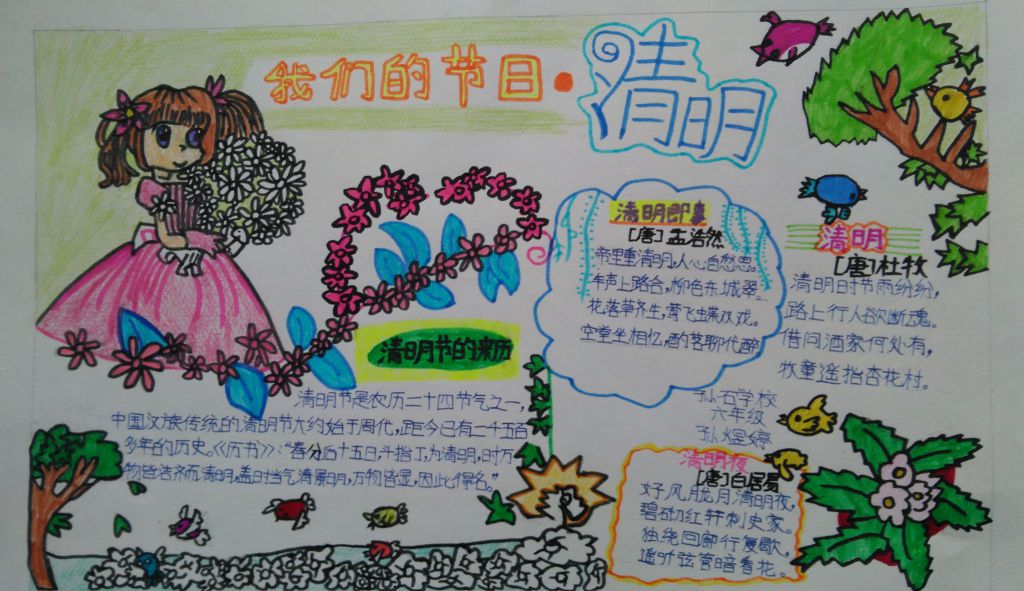 我们的节日·清明
清明节的来历
清明节是农历二十四节气之一，
中国汉族传统的清明节大约始于周代，距今已有二千五百
多年的历史。《历书》："春分后十五日，斗指丁，为清明，时万
物皆洁齐而清明，盖时当气清景明，万物皆显，因此得名。"
清明即事
[唐]孟浩然
帝里重清明，人心自愁思。
车声上路合，柳色东城翠。
花落草齐生，莺飞蝶双戏。
空堂坐相忆，酌茗聊代醉
清明
[唐]杜牧
清明时节雨纷纷，
路上行人欲断魂。
借问酒家何处有，
牧童遥指杏花村。
孙石学校
六年级
孙煜婷
清明夜
[唐]白居易
好风胧月清明夜，
碧砌红轩刺史家。
独绕回廊行复歇，
遥听弦管暗看花。